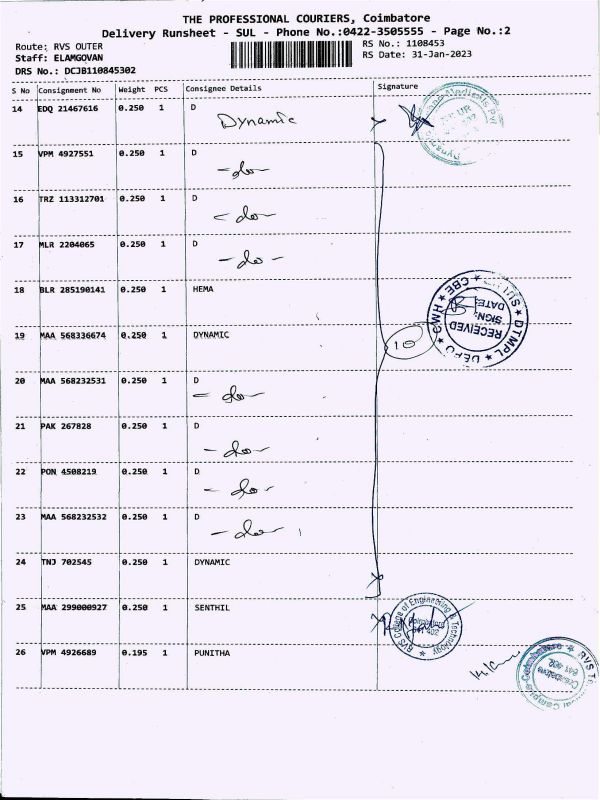 THE PROFESSIONAL COURIERS, Coimbatore
Delivery Runsheet - SUL - Phone No.:0422-3505555 - Page No.:2
Route: RVS OUTER
RS No.: 1108453
Staff: ELAMGOVAN
RS Date: 31-Jan-2023
DRS No.: DCJB110845302
S No Consignment No Weight PCS Consignee Details Signature
14 EDQ 21467616 0.250 1 D
Dynamic
15 VPM 4927551 0.250 1 D
-do-
16 TRZ 113312701 0.250 1 D
-do-
17 MLR 2204065 0.250 1 D
-do-
18 BLR 285190141 0.250 1 HEMA
DTMPL ★ DEPO ★ CWH ★ CBE ★
RECEIVED
SIGN:
DATE:
19 MAA 568336674 0.250 1 DYNAMIC
10
20 MAA 568232531 0.250 1 D
-do-
21 PAK 267828 0.250 1 D
-do-
22 PON 4508219 0.250 1 D
-do-
23 MAA 568232532 0.250 1 D
-do-
24 TNJ 702545 0.250 1 DYNAMIC
25 MAA 299000927 0.250 1 SENTHIL
RVS College of Engineering & Technology
Coimbatore
641 402
26 VPM 4926689 0.195 1 PUNITHA
Coimbatore
641 402